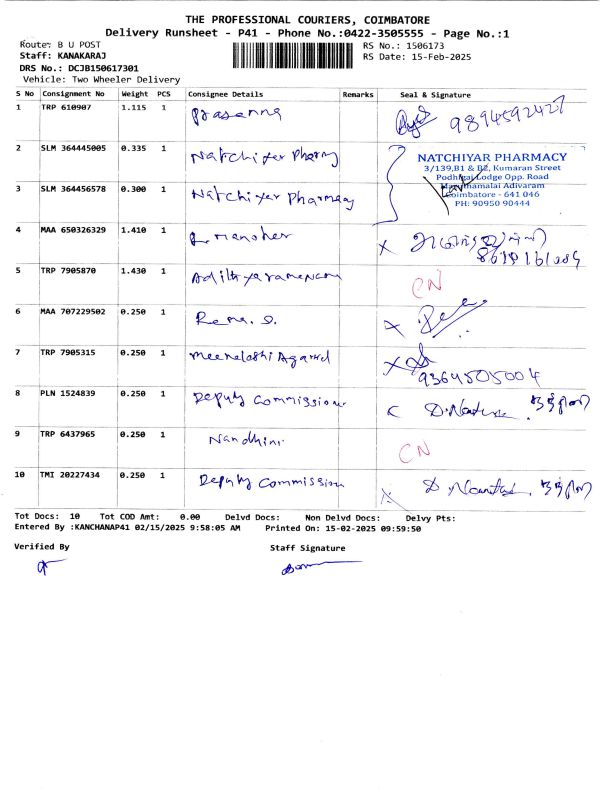 THE PROFESSIONAL COURIERS, COIMBATORE
Delivery Runsheet - P41 - Phone No.:0422-3505555 - Page No.:1
Route: B U POST RS No.: 1506173
Staff: KANAKARAJ RS Date: 15-Feb-2025
DRS No.: DCJB150617301
Vehicle: Two Wheeler Delivery
S No Consignment No Weight PCS Consignee Details Remarks Seal & Signature
1 TRP 610907 1.115 1 Prasanna 9894592427
2 SLM 364445005 0.335 1 Natchiyer Pharmy
NATCHIYAR PHARMACY
3/139,B1 & B2, Kumaran Street
Podhigai Lodge Opp. Road
Maruthamalai Adivaram
Coimbatore - 641 046
PH: 90950 90444
3 SLM 364456578 0.300 1 Natchiyer Pharmacy
4 MAA 650326329 1.410 1 R. Manoher
5 TRP 7905870 1.430 1 CN
6 MAA 707229502 0.250 1
7 TRP 7905315 0.250 1 Meenalashi Agarwal
9364505004
8 PLN 1524839 0.250 1 Deputy Commissioner
9 TRP 6437965 0.250 1 Nandhini CN
10 TMI 20227434 0.250 1 Deputy Commission
Tot Docs: 10 Tot COD Amt: 0.00 Delvd Docs: Non Delvd Docs: Delvy Pts:
Entered By :KANCHANAP41 02/15/2025 9:58:05 AM Printed On: 15-02-2025 09:59:50
Verified By Staff Signature